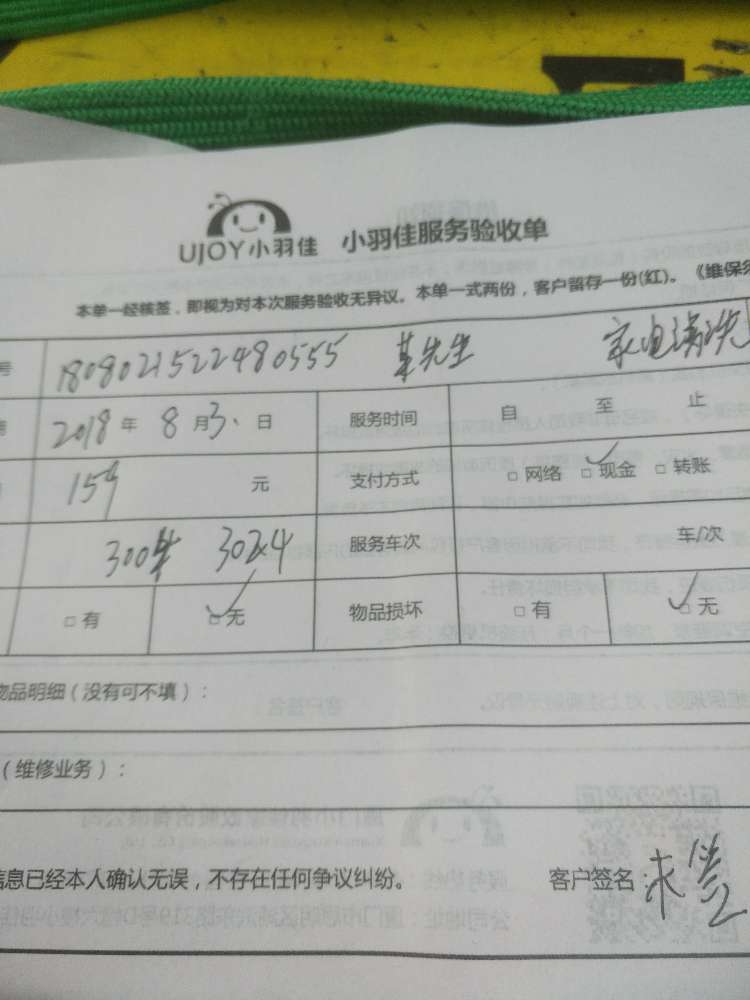 UJOY小羽佳 小羽佳服务验收单
本单一经核签，即视为对本次服务验收无异议。本单一式两份，客户留存一份(红)。《维保须
号 1808021522480555 某先生 家电清洗
2018年8月3日 服务时间 自 至 止
159元 支付方式 □网络 □现金 □转账
服务车次 车/次
□有 □无 物品损坏 □有 □无
物品明细（没有可不填）：
（维修业务）：
信息已经本人确认无误，不存在任何争议纠纷。 客户签名